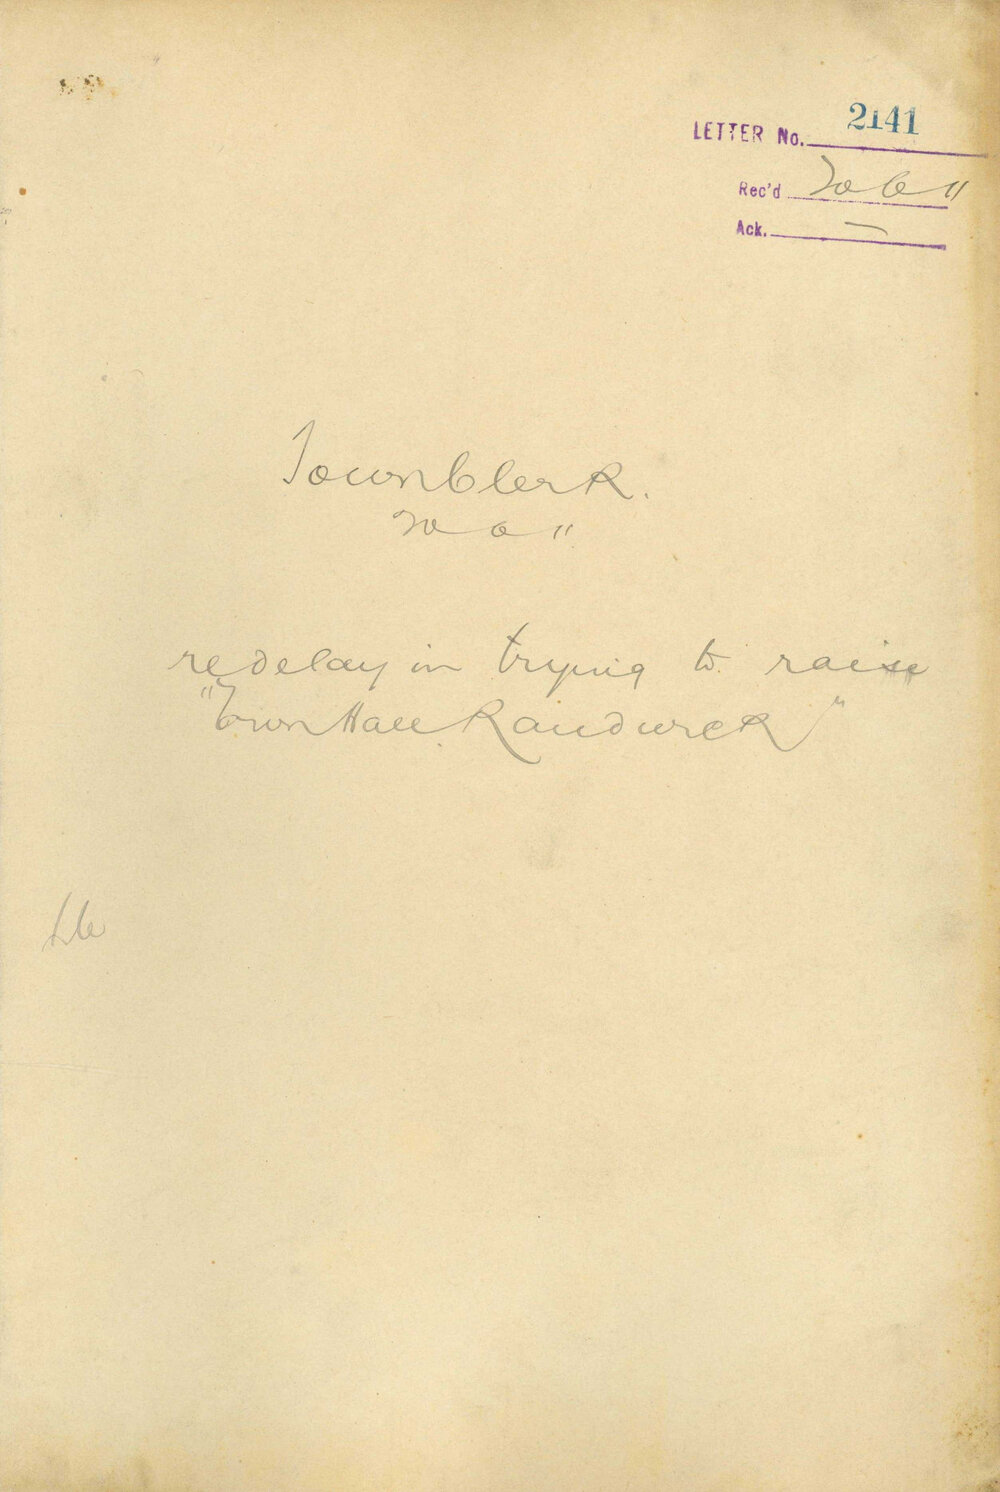 LETTER No. 2141
Rec'd 20 6 11
Ack. —
Town Clerk.
20 6 11
re delay in trying to raise
"Town Hall Randwick"